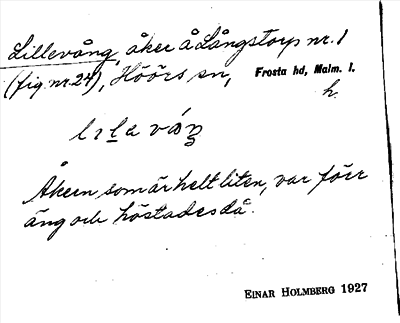 Lillevång, åker å Långstorp nr. 1
(fig nr. 24), Höörs sn, Frosta hd, Malm. l.
h.
Åkern som är helt liten, var förr
äng och höstades då.
EINAR HOLMBERG 1927